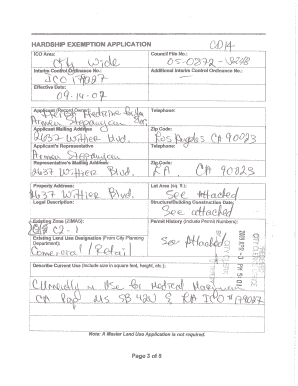 CD14
HARDSHIP EXEMPTION APPLICATION
ICO Area: Council File No.:
City Wide 05-0872
Interim Control Ordinance No.: Additional Interim Control Ordinance No.:
ICO 179027
Effective Date:
09-14-07
Applicant (Record Owner): Telephone:
Medicine
Armen Stepanyan
Applicant Mailing Address Zip Code:
2637 Wittier Blvd. Los Angeles CA 90023
Applicant's Representative Telephone:
Armen Stepanyan
Representative's Mailing Address Zip Code:
2637 Wittier Blvd. LA, CA 90023
Property Address: Lot Area (sq. ft.):
2637 Wittier Blvd. See Attached
Legal Description: Structure/Building Construction Date:
See attached
Existing Zone (ZIMAS): Permit History (include Permit Numbers):
C2-1
Existing Land Use Designation (From City Planning Department): See Attached
Comercial / Retail
Describe Current Use (Include size in square feet, height, etc.):
Currently in Use for Medical
CA Prop 215 SB 420 & LA ICO # 179027
Note: A Master Land Use Application is not required.
Page 3 of 8